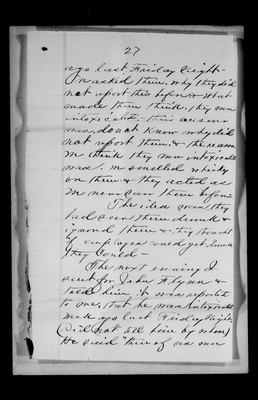 27
ago last Friday Night -
I asked them why they did
not report this before & what
made them think they were
intoxicated - their answer
was, do not know why did
not report them & the reason
we think they were intoxicated
was. we smelled whisky
on them & they acted as
we never saw them before
The idea was, they
had seen them drunk &
ignored them & they
if employees could get drunk
they could -
The next evening I
sent for John Flynn &
told him it was reported
to me, that he was intoxicated
week ago last Friday Night
(Did not tell him by whom)
He said "three of us were